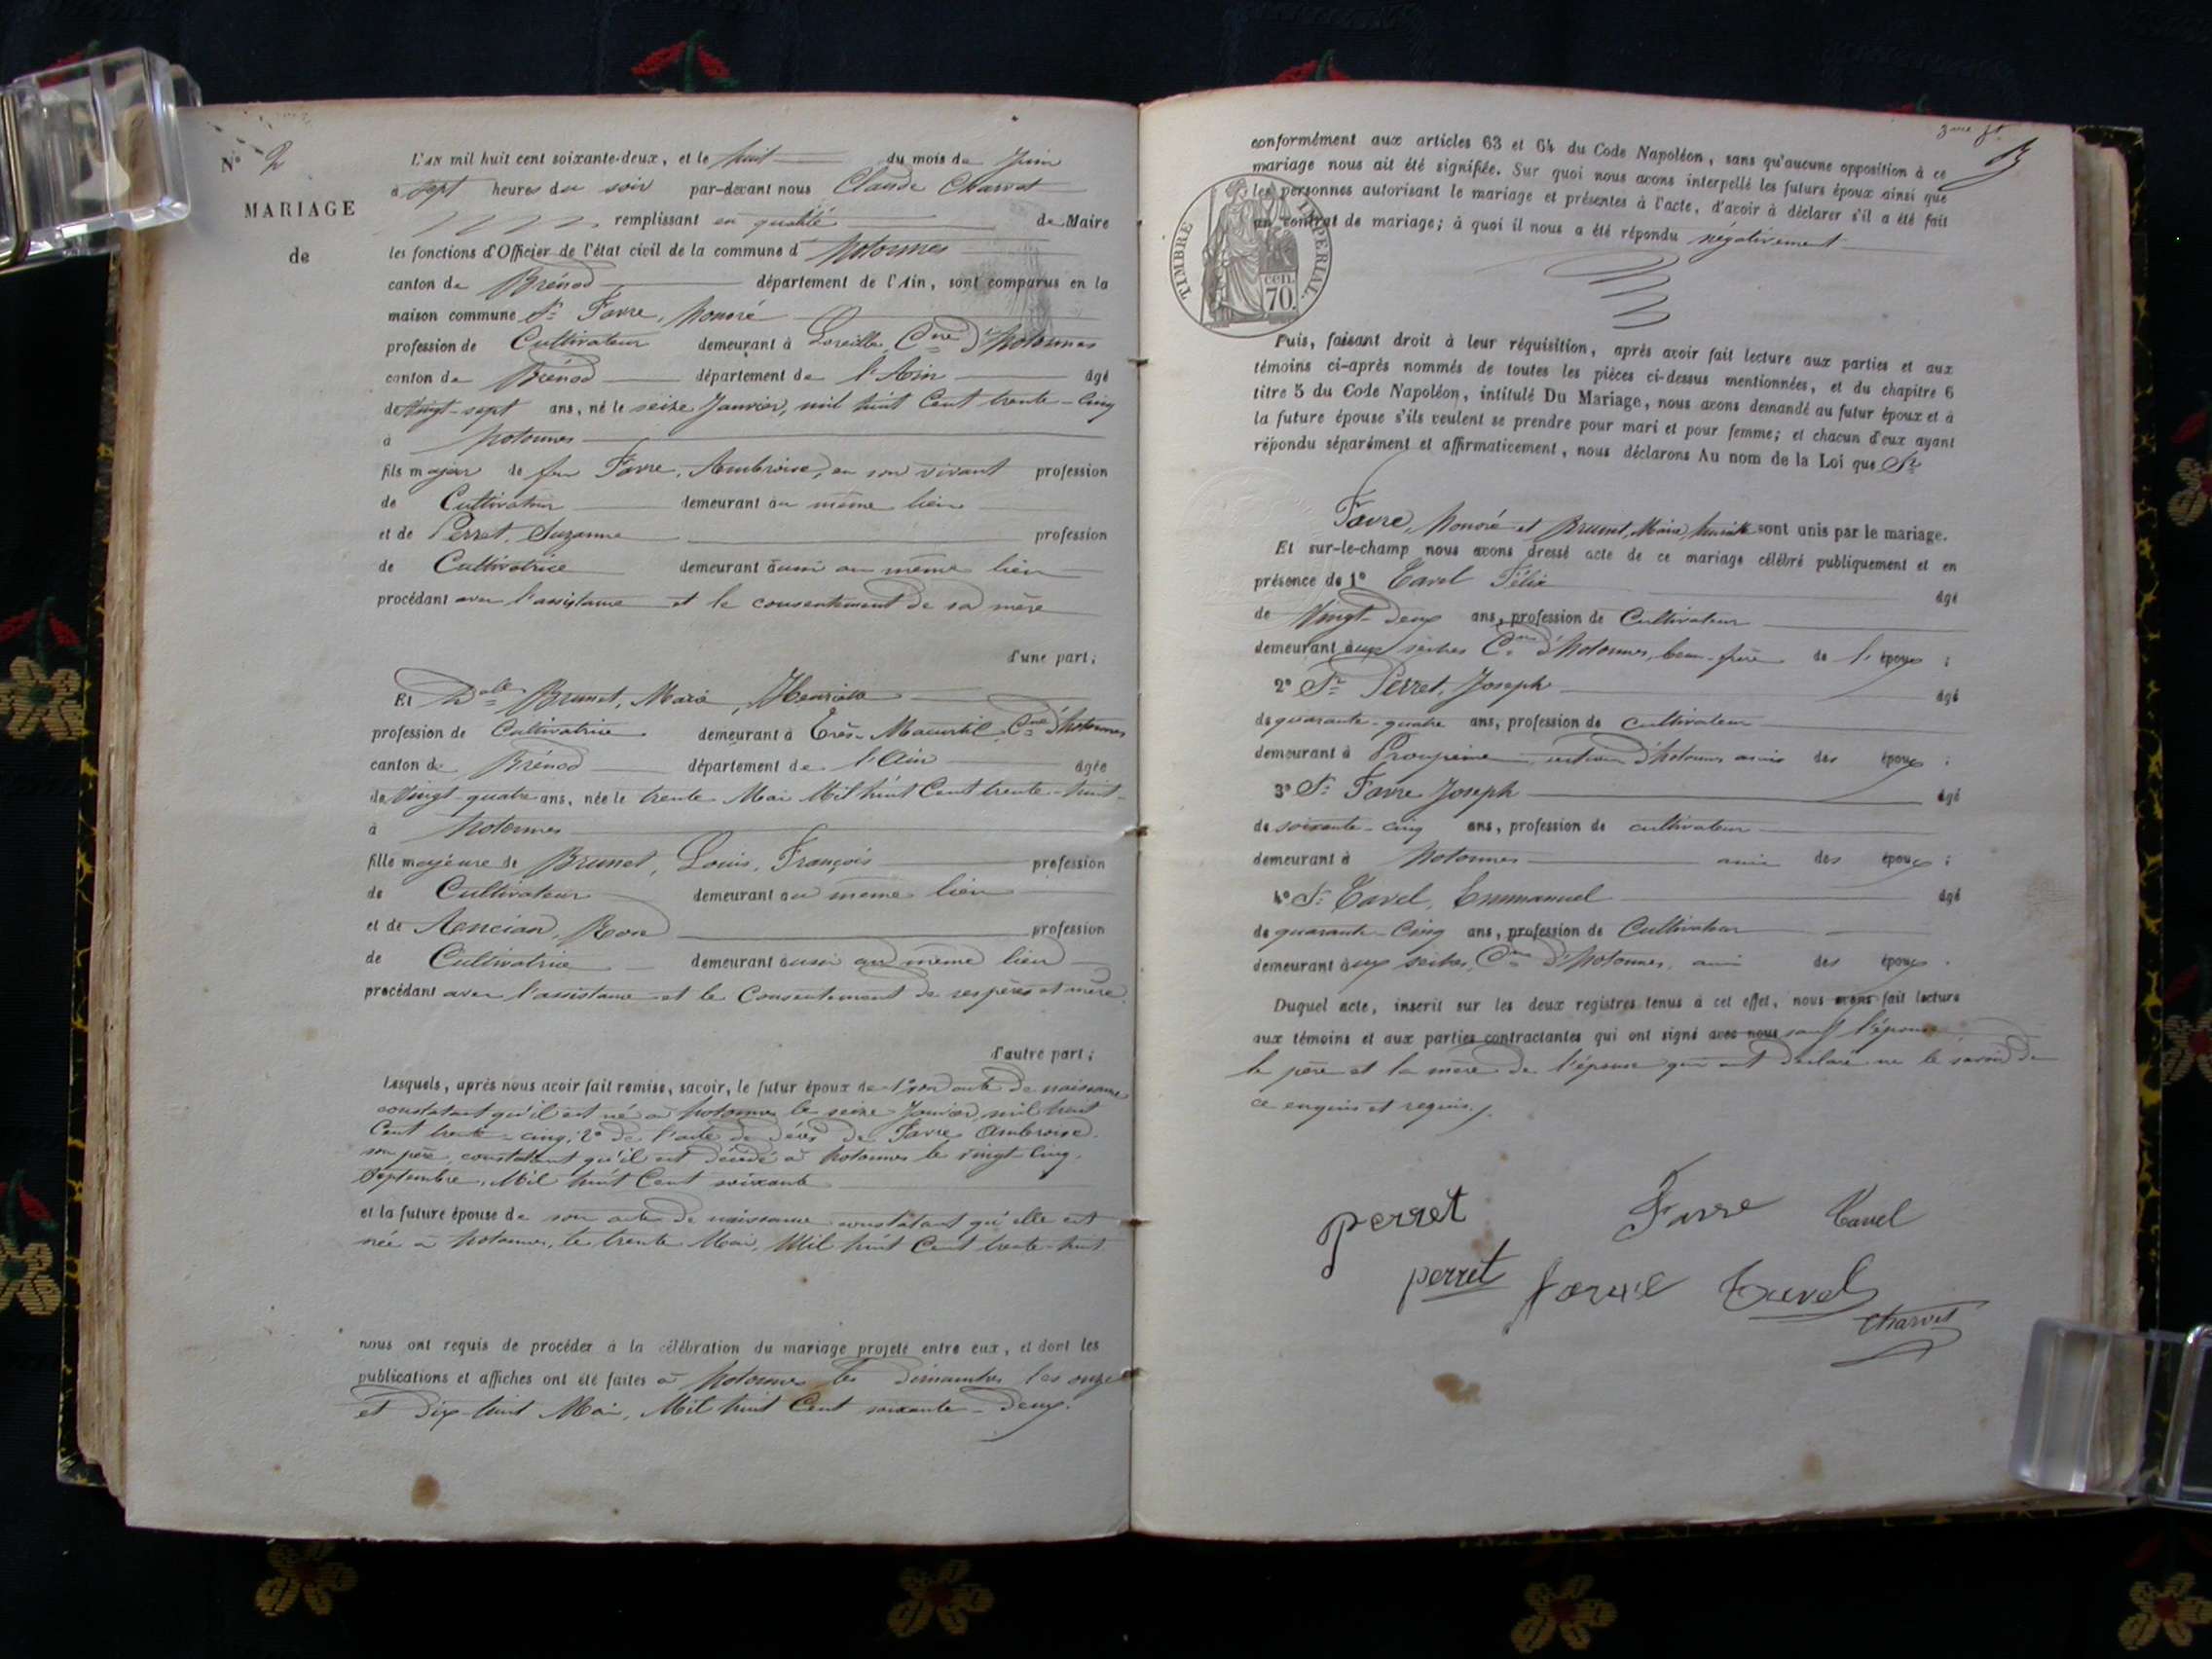 N° 2
MARIAGE
de
L'AN mil huit cent soixante-deux, et le huit du mois de Juin
à sept heures du soir par-devant nous Claude Charvet
remplissant en qualité de Maire
les fonctions d'Officier de l'état civil de la commune d'hotonnes
canton de Brénod département de l'Ain, sont comparus en la
maison commune Sr Favre, honoré
profession de Cultivateur demeurant à Cne d'hotonnes
canton de Brénod département de l'Ain âgé
de Vingt-sept ans, né le seize Janvier, mil huit Cent trente-Cinq
à hotonnes
fils majeur de feu Favre, Ambroise, en son vivant profession
de Cultivateur demeurant au même lieu
et de Perret, Suzanne profession
de Cultivatrice demeurant aussi au même lieu
procédant avec l'assistance et le consentement de sa mère
d'une part;
Et Dlle Brunet, Marie, Henriette
profession de Cultivatrice demeurant à Cne d'hotonnes
canton de Brénod département de l'Ain âgée
de Vingt-quatre ans, née le trente Mai Mil huit Cent trente-huit
à hotonnes
fille majeure de Brunet, Louis, François profession
de Cultivateur demeurant au même lieu
et de Ancian, profession
de Cultivatrice demeurant aussi au même lieu
procédant avec l'assistance et le Consentement de ses père et mère
d'autre part;
Lesquels, après nous avoir fait remise, savoir, le futur époux de 1° son acte de naissance
constatant qu'il est né à hotonnes le seize Janvier mil huit
Cent trente-cinq; 2° de l'acte de décès de Favre Ambroise
son père, constatant qu'il est décédé à hotonnes le vingt-Cinq
Septembre, Mil huit Cent soixante
et la future épouse de son acte de naissance constatant qu'elle est
née à hotonnes, le trente Mai, Mil huit Cent trente-huit
nous ont requis de procéder à la célébration du mariage projeté entre eux, et dont les
publications et affiches ont été faites à hotonnes les dimanches les onze
et Dix-huit Mai, Mil huit Cent soixante-Deux.
conformément aux articles 63 et 64 du Code Napoléon, sans qu'aucune opposition à ce
mariage nous ait été signifiée. Sur quoi nous avons interpellé les futurs époux ainsi que
les personnes autorisant le mariage et présentes à l'acte, d'avoir à déclarer s'il a été fait
un contrat de mariage; à quoi il nous a été répondu négativement
TIMBRE IMPERIAL.
cen.
70.
Puis, faisant droit à leur réquisition, après avoir fait lecture aux parties et aux
témoins ci-après nommés de toutes les pièces ci-dessus mentionnées, et du chapitre 6
titre 5 du Code Napoléon, intitulé Du Mariage, nous avons demandé au futur époux et à
la future épouse s'ils veulent se prendre pour mari et pour femme; et chacun d'eux ayant
répondu séparément et affirmativement, nous déclarons Au nom de la Loi que Sr
Favre, honoré et Brunet, Marie, henriette sont unis par le mariage.
Et sur-le-champ nous avons dressé acte de ce mariage célébré publiquement et en
présence de 1° Tavel Félix âgé
de Vingt-Deux ans, profession de Cultivateur
demeurant aux sèches Cne d'hotonnes, beau-frère de l'époux;
2° Sr Perret, Joseph âgé
de quarante-quatre ans, profession de cultivateur
demeurant à section d'hotonnes amis des époux;
3° Sr Favre Joseph âgé
de soixante-cinq ans, profession de cultivateur
demeurant à hotonnes ami des époux;
4° Sr Tavel, Emmanuel âgé
de quarante-Cinq ans, profession de Cultivateur
demeurant aux sèches, Cne d'hotonnes, ami des époux.
Duquel acte, inscrit sur les deux registres tenus à cet effet, nous avons fait lecture
aux témoins et aux parties contractantes qui ont signé avec nous sauf l'épouse
le père et la mère de l'épouse qui ont déclaré ne le savoir de
ce enquis et requis.
perret Favre Tavel
perret favre Tavel
Charvet